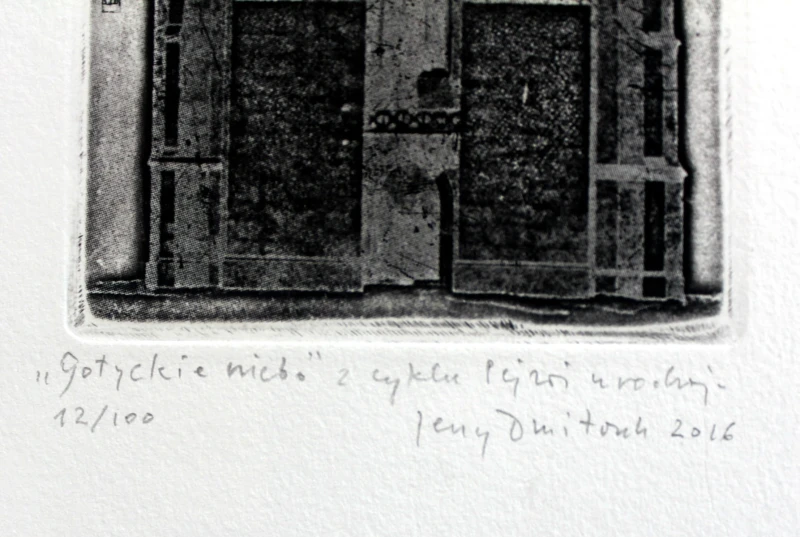 „Gotyckie niebo" z cyklu
12/100
Jerzy Dmitruk 2016